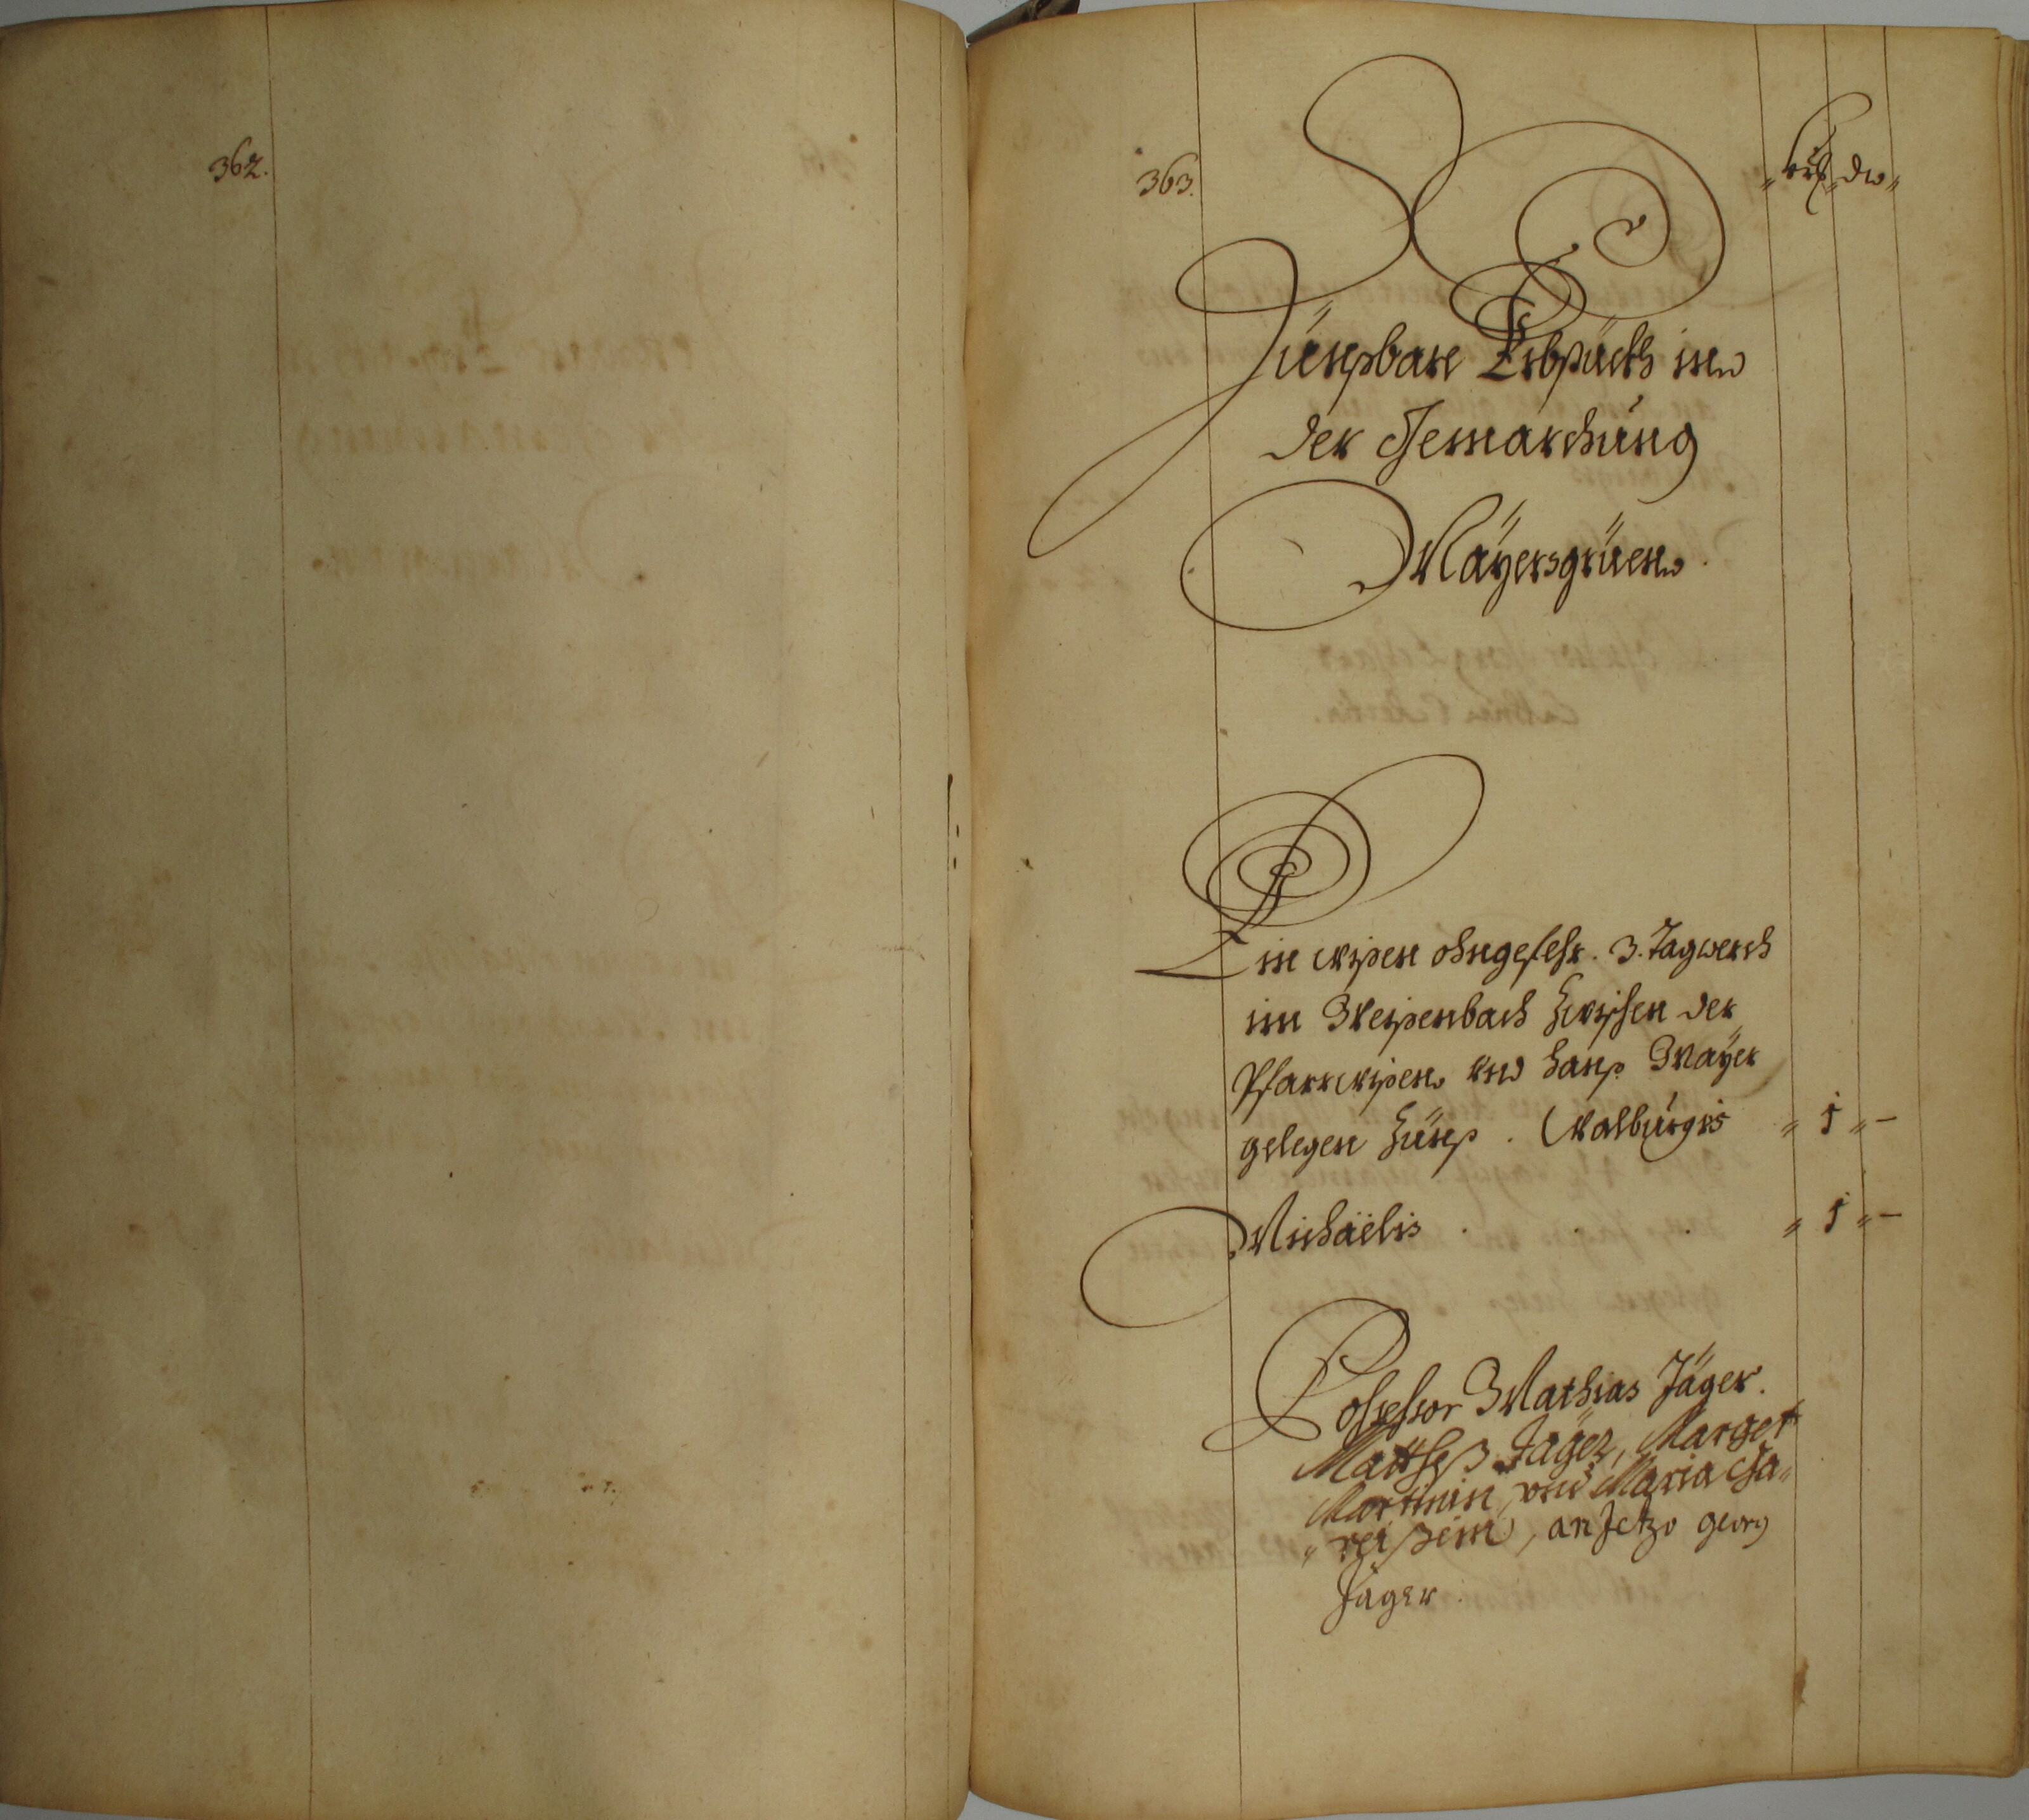 362.
363.
Zünßbare Erbstückh in
der Gemarckhung
Mäyersgrüen.
Ein wißen ohngefehr. 3. Tagwerch
im Weißenbach zwischen der
Pfarrwißen vnd Hanß Mayer
gelegen Zünß. Walburgis „ 1 „ –
Michaëlis . . . „ 1 „ –
Possessor Mathias Jäger.
Matthes Jäger, Marget
Martinin, vnd Maria Ga„
„reißein, an Jetzo georg
Jäger.